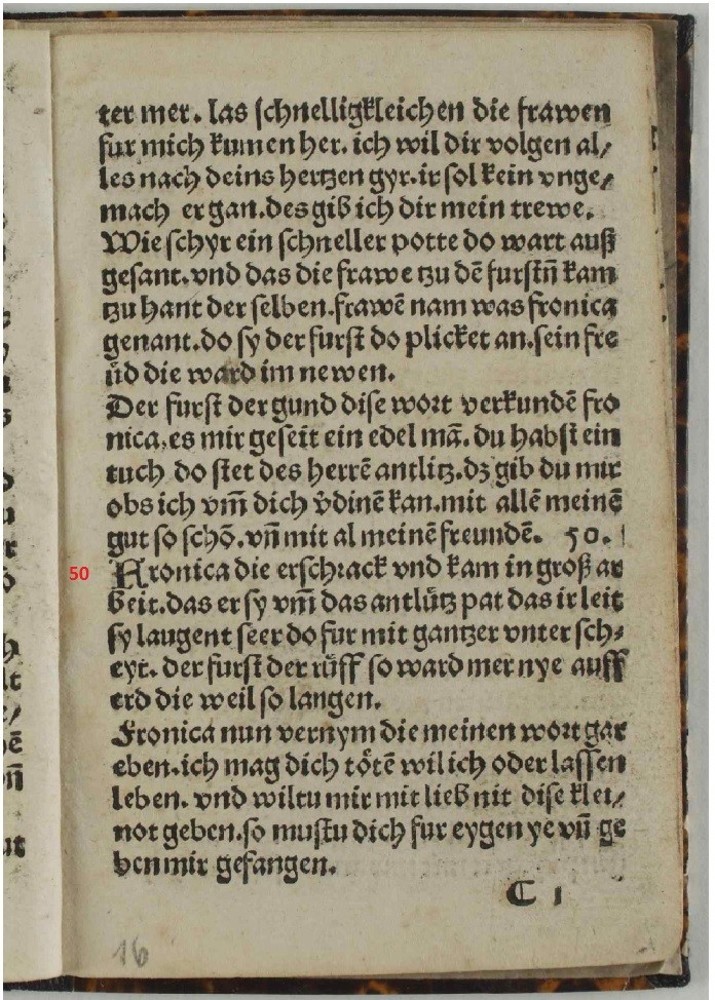 ter mer. las schnelligkleichen die frawen
fur mich kumen her. ich wil dir volgen al/
les nach deins hertzen gyr. ir sol kein vnge/
mach er gan. des gib ich dir mein trewe.
Wie schyr ein schneller potte do wart auß
gesant. vnd das die frawe tzu dē furstn̄ kam
tzu hant der selben. frawē nam was fronica
genant. do sy der furst do plicket an. sein fre
üd die ward im newen.
Der furst der gund dise wort verkundē fro
nica. es mir geseit ein edel mā. du habst ein
tuch do stet des herrē antlitz. dz gib du mir
obs ich vm̄ dich v̊dinē kan. mit allē meinē
gut so schō. vn̄ mit al meinē freundē. 50.
50 Fronica die erschrack vnd kam in groß ar
beit. das er sy vm̄ das antlütz pat das ir leit
sy laugent seer do fur mit gantzer vnter sch/
eyt. der furst der rüff so ward mer nye auff
erd die weil so langen.
Fronica nun vernym die meinen wort gar
eben. ich mag dich tötē wil ich oder lassen
leben. vnd wiltu mir mit lieb nit dise klei/
not geben. so mustu dich fur eygen ye vn̄ ge
ben mir gefangen.
C 1
16